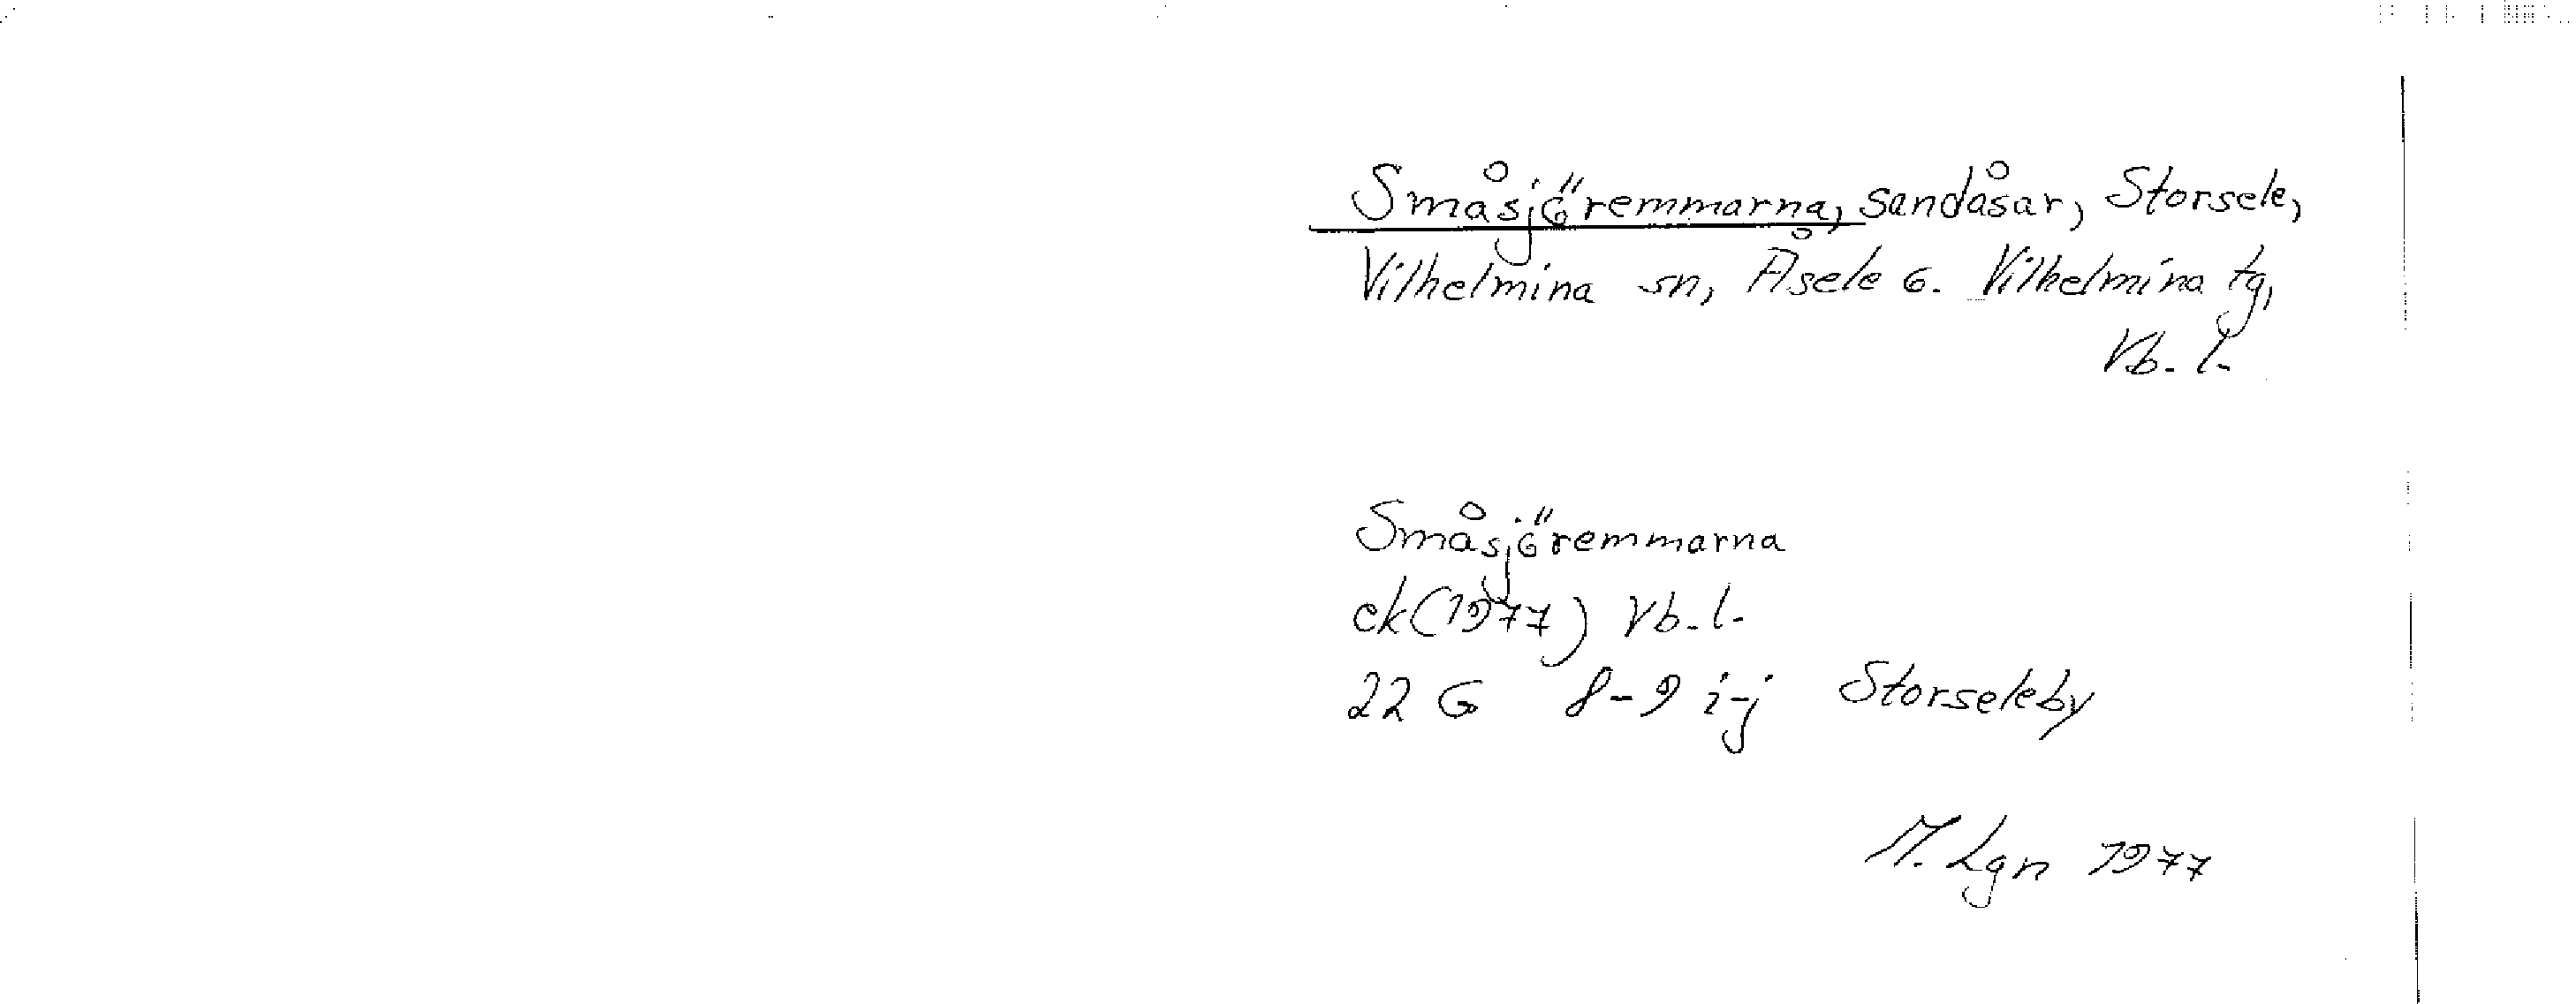 Småsjöremmarna, sandåsar, Storsele,
Vilhelmina sn, Åsele o. Vilhelmina tg,
Vb. l.
Småsjöremmarna
ek (1977) Vb. l.
22 G 8-9 i-j Storseleby
M. Lgn 1977